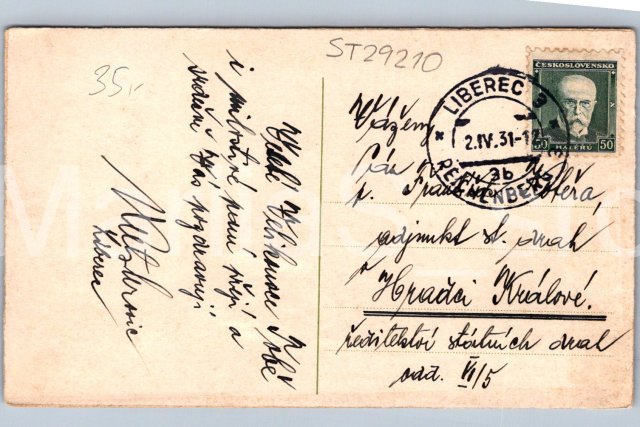 35,-
ST29210
Veselé Velikonoce Tobě
i milostivé paní přejí a
srdečně Vás pozdravují
Liberec
ČESKOSLOVENSKO
50 HALÉRŮ 50
LIBEREC 3
2.IV.31-1
3b
REICHENBERG
Vážený
Pán
p. František
adjunkt st. drah
v
Hradci Králové.
ředitelství státních drah
odd. VI/5